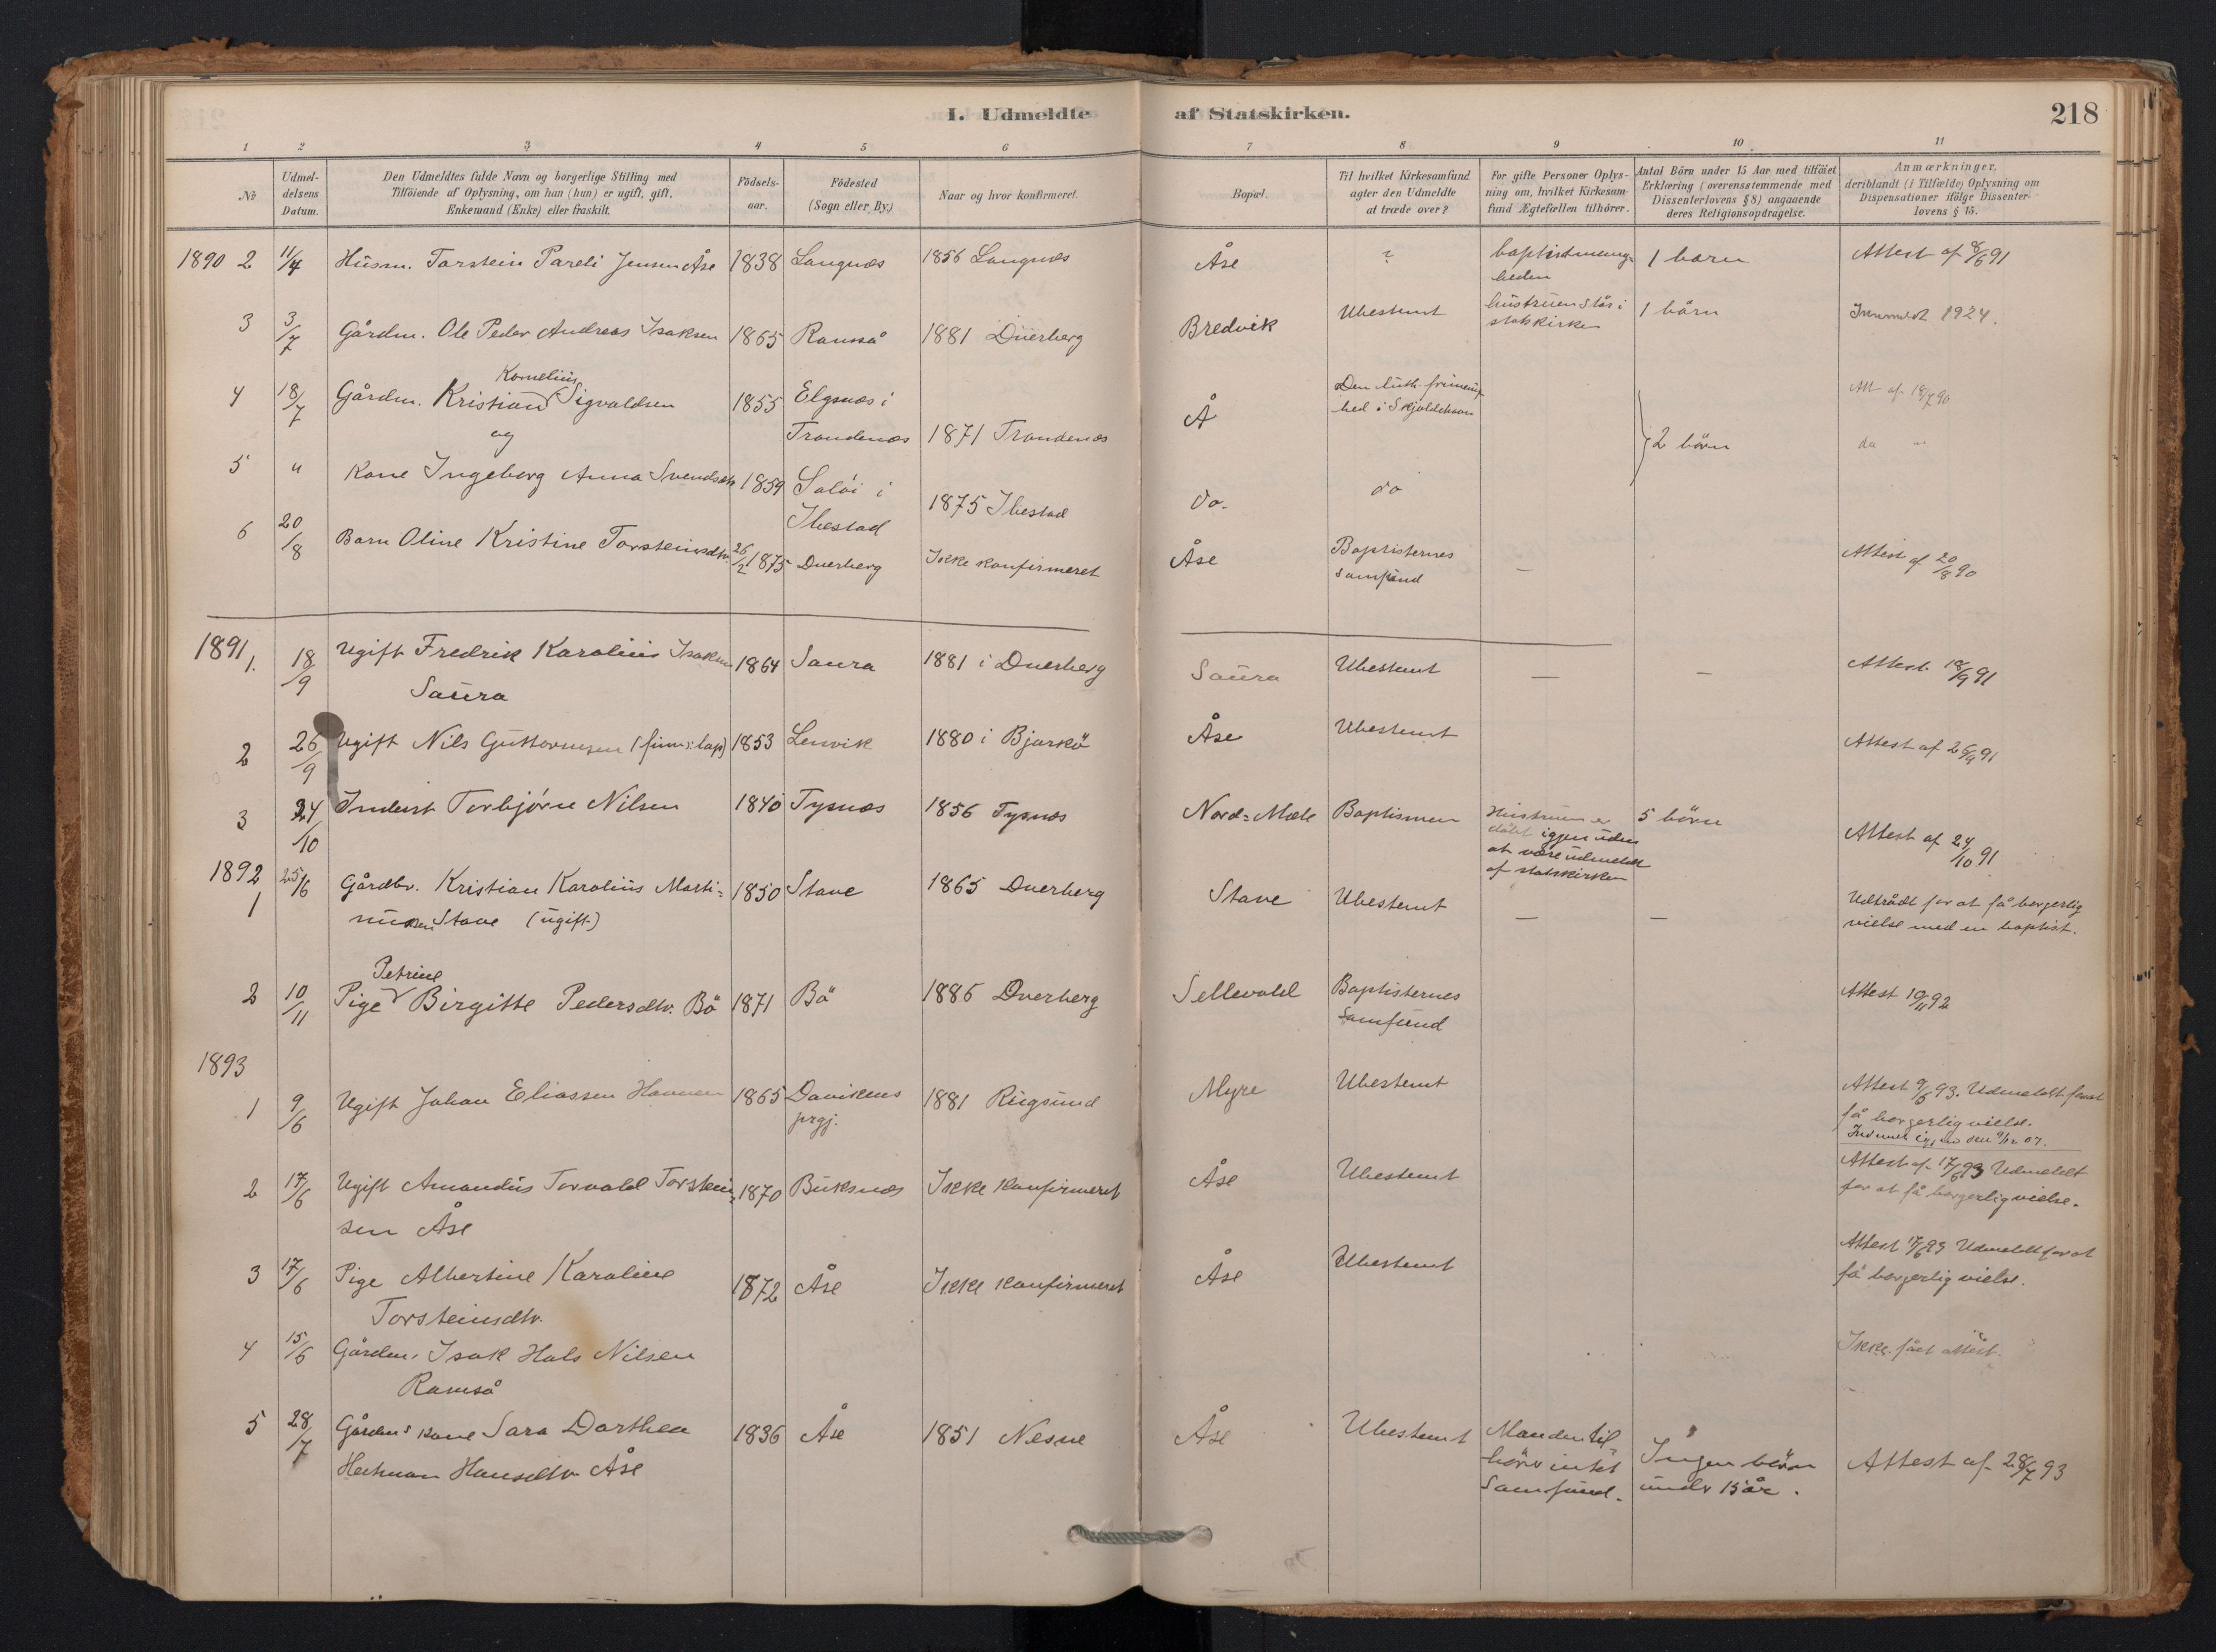 I. Udmeldte af Statskirken.
218
1 2 3 4 5 6 7 8 9 10 11
№
Udmel-
delsens
Datum.
Den Udmeldtes fulde Navn og borgerlige Stilling med
Tilföiende af Oplysning, om han (hun) er ugift, gift,
Enkemand (Enke) eller fraskilt.
Födsels-
aar.
Födested
(Sogn eller By.)
Naar og hvor konfirmeret.
Bopæl.
Til hvilket Kirkesamfund
agter den Udmeldte
at træde over?
For gifte Personer Oplys-
ning om, hvilket Kirkesam-
fund Ægtefællen tilhörer.
Antal Börn under 15 Aar med tilföiet
Erklæring (overensstemmende med
Dissenterlovens § 8) angaaende
deres Religionsopdragelse.
Anmærkninger,
deriblandt (i Tilfælde) Oplysning om
Dispensationer ifölge Dissenter-
lovens § 15.
1890 2 11/4 Husm. Torstein Pareli Jensen Åse 1838 Langnes 1856 Langnes Åse ? baptistmenig-
heden
1 barn Attest af 8/6 91
3 3/7 Gårdm. Ole Peder Andreas Isaksen 1865 Ramså 1881 Dverberg Bredvik Ubestemt hustruen står i
statskirken
1 barn 1924.
4 18/7 Gårdm. Kristian Kornelius Sigvaldsen 1855 Elgsnæs i
Trondenæs 1871 Trondenæs Å Den luth. frimenig-
hed i Skjoldehavn
Att af 18/7 90
og
2 börn
do "
5 " Kone Ingeborg Anna Svendsdtr 1859 Salöi i
Ibestad 1875 Ibestad do. do
6 20/8 Barn Oline Kristine Torsteinsdtr. 26/2 1875 Dverberg Ikke konfirmeret Åse Baptisternes
samfund
— Attest af 20/8 90
1891 1. 18/9 Ugift Fredrik Karolius Isaksen 1864 Saura 1881 i Dverberg Saura Ubestemt — — Attest 18/9 91
Saura
2 26/9 Ugift Nils Guttormsen (finn: lap) 1853 Lenvik 1880 i Bjarkö Åse Ubestemt Attest af 26/9 91
3 24/10 Inderst Torbjörn Nilsen 1840 Tysnæs 1856 Tysnæs Nord-Mæle Baptismen Hustruen er
döbt igjen uden
at være udmeldt
af statskirken
5 börn Attest af 24/10 91
1892
1 25/6 Gårdbr. Kristian Karolius Marti-
nusen Stave (ugift) 1850 Stave 1865 Dverberg Stave Ubestemt — — Udtrådt for at få borgerlig
vielse med en baptist.
2 10/11 Pige Petrine Birgitte Pedersdtr. Bö 1871 Bö 1886 Dverberg Sellevold Baptisternes
Samfund
Attest 10/11 92
1893
1 9/6 Ugift Johan Eliassen Havnen 1865 Davikens
prgj. 1881 Rugsund Myre Ubestemt Attest 9/6 93. Udmeldt for at
få borgerlig vielse.
den 9/12 07.
2 17/6 Ugift Amandus Torvald Torstein-
sen Åse 1870 Buksnæs Ikke konfirmeret Åse Ubestemt Attest af 17/6 93 Udmeldt
for at få borgerlig vielse.
3 17/6 Pige Albertine Karoline
Torsteinsdtr. 1872 Åse Ikke konfirmeret Åse Ubestemt Attest 17/6 93 Udmeldt for at
få borgerlig vielse.
4 15/6 Gårdm. Isak Hals Nilsen
Ramså
Ikke fået attest.
5 28/7 Gårdm.s kone Sara Dorthea
Hansdtr Åse 1836 Åse 1851 Nesne Åse Ubestemt Manden til-
hörer intet
Samfund.
Ingen börn
under 15 år.
Attest af 28/7 93